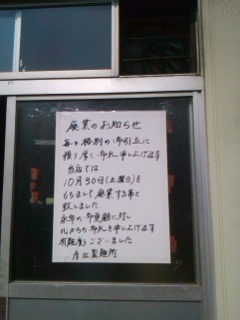 廃業のお知らせ
毎々格別の御引立に
預り厚く御礼申し上げます
当店では
10月30日(土曜日)を
もちまして廃業する事と
致しました
永年の御愛顧に対し
心からの御礼を申し上げます
有難うございました
製麺所